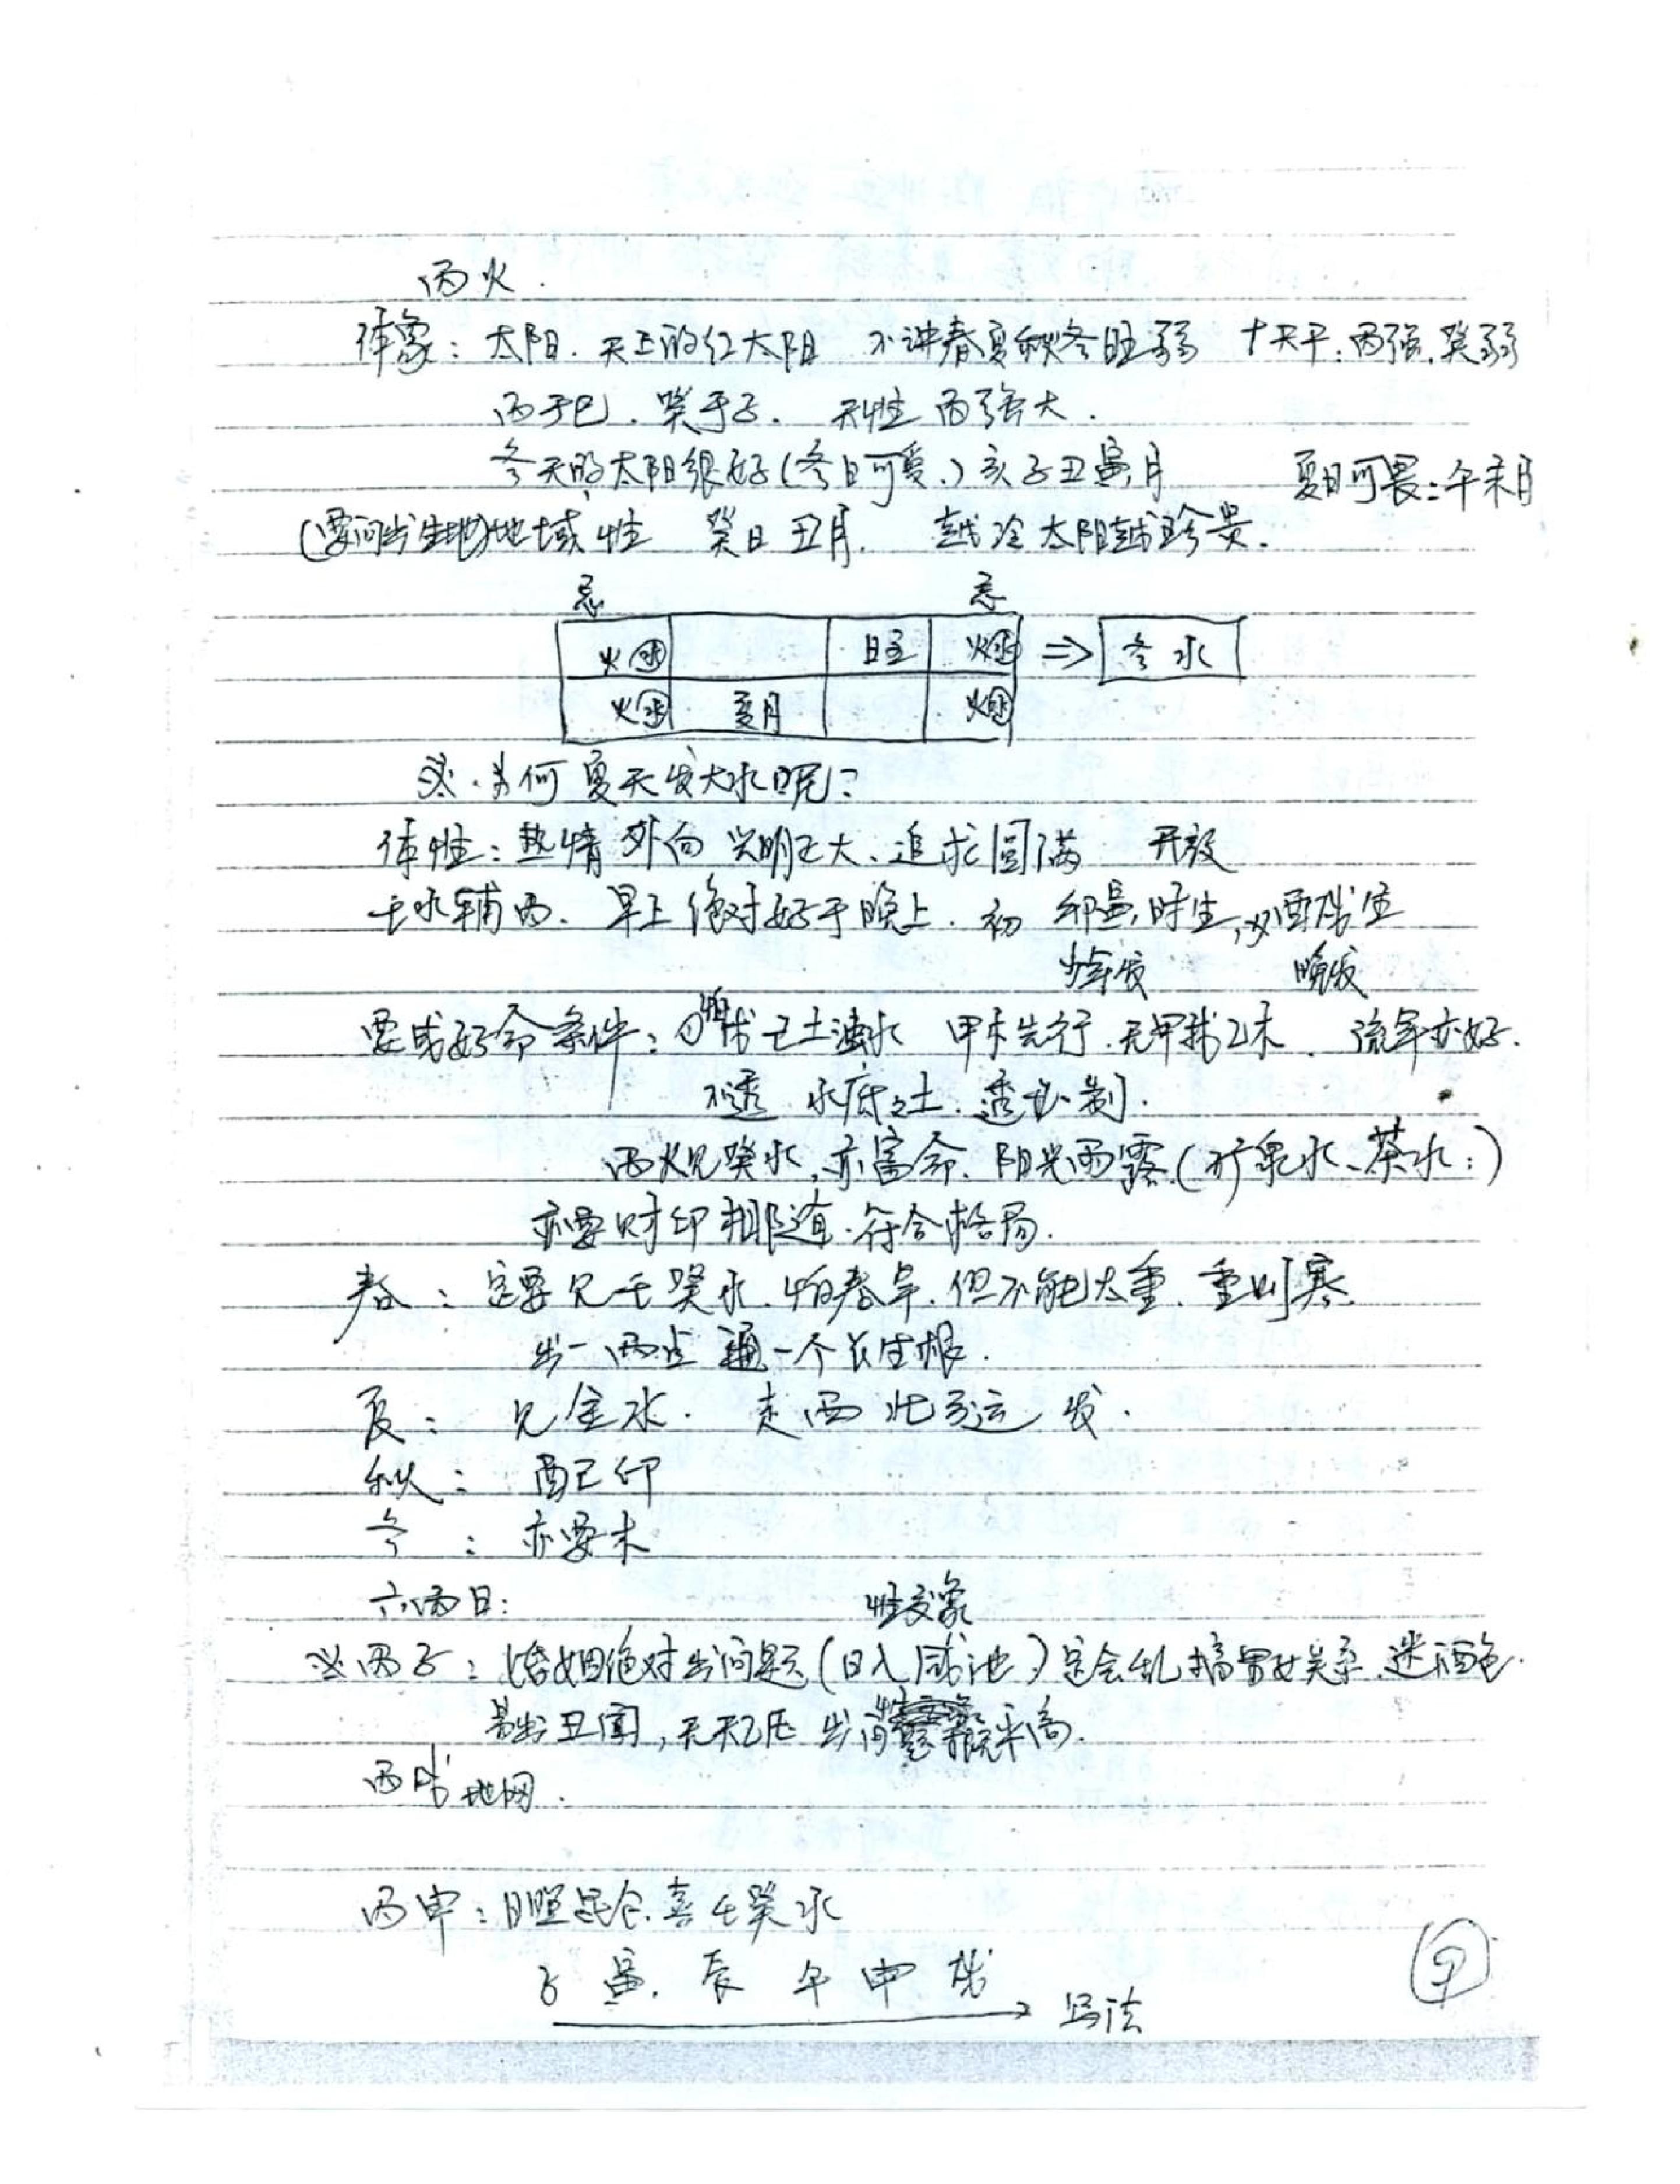 丙火.
体象: 太阳. 天上的红太阳 不讲春夏秋冬旺弱 十天干: 丙强, 癸弱
丙于巳. 癸于子. 天性 丙强大.
冬天的太阳很好(冬日可爱.) 亥子丑寅月 夏日可畏: 午未月
(要问出生地)地域性 癸日丑月. 越冷太阳越珍贵.
忌 忌
火团 日主 火团 ⇒ 冬水
火团 夏月 火团
为何夏天发大水呢?
体性: 热情 外向 光明正大、追求圆满 开放
壬水辅丙. 早上绝对好于晚上. 卯寅时生, 酉戌生
少年发 晚发
要成好命条件: ①怕戊己土浊水 甲木先行. 无甲找乙木. 流年亦好.
不透 水底之土. 透出制.
丙火见癸水, 亦富命. 阳光雨露(矿泉水、茶水:)
亦要财印相随. 符合格局.
春: 定要见壬癸水. 怕春旱. 但不能太重. 重则寒.
出一两点 通一个长生根.
夏: 见金水. 走西北运发.
秋: 配己印
冬: 亦要木
六丙日: 性灾象
丙子: 婚姻绝对出问题(日入咸池)定会乱搞男女关系. 迷酒色.
易出丑闻,
丙戌 地网.
丙申: 日照昆仑. 喜壬癸水
子 寅. 辰 午 申 戌
→ 写法
9